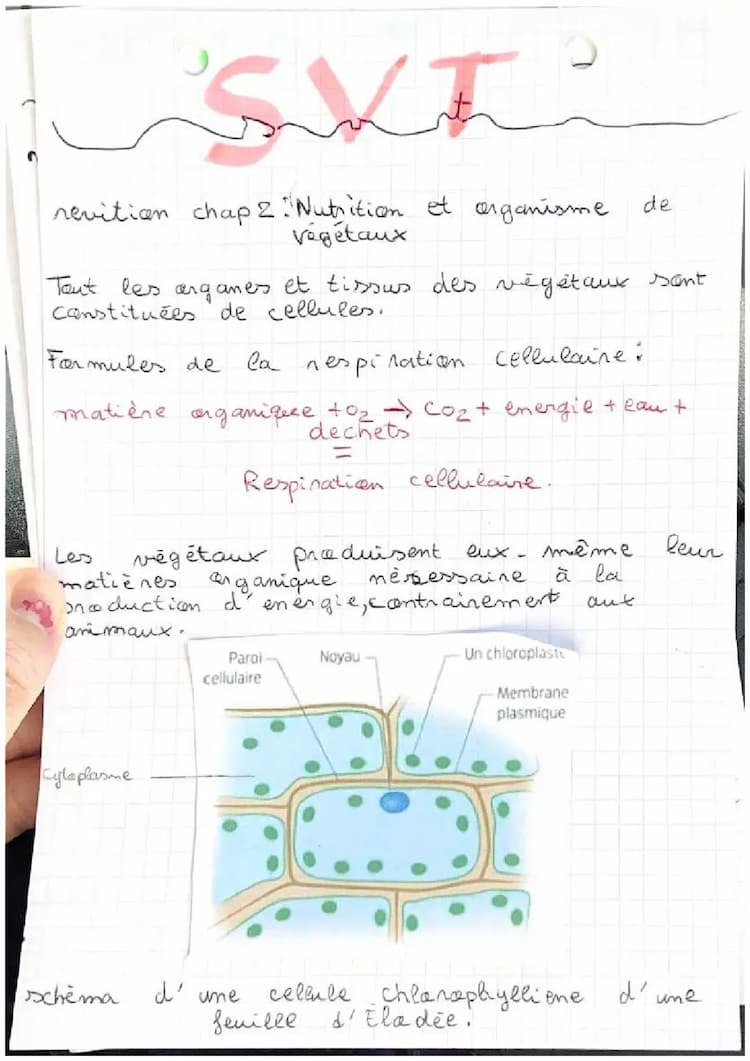 SVT
revition chap 2 : Nutrition et organisme de
végétaux
Tout les organes et tissus des végétaux sont
constituées de cellules.
Formules de la respiration cellulaire :
matière organique + O2 → CO2 + energie + eau +
dechets
=
Respiration cellulaire.
Les végétaux produisent eux-même leur
matières organique nécessaire à la
production d'énergie, contrairement aux
animaux.
Paroi
cellulaire
Noyau
Un chloroplaste
Membrane
plasmique
Cytoplasme
schéma d'une cellule chlorophylliene d'une
feuille d'Élodée.